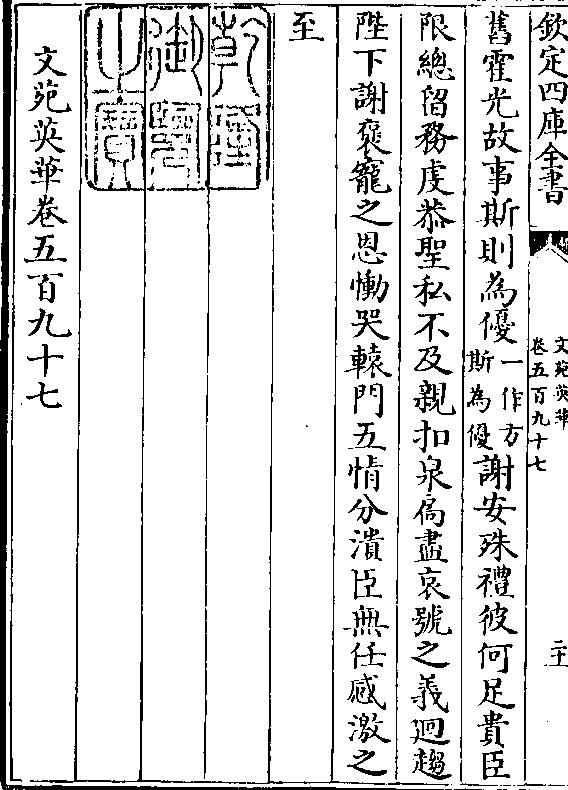 欽定四庫全書
文苑英華
卷五百九十七
二十
舊霍光故事斯則為優一作方斯為優謝安殊禮彼何足貴臣
限總留務虔恭聖私不及親扣泉扃盡哀號之義迴趨
陛下謝褒寵之恩慟哭轅門五情分潰臣無任感激之
至
乾隆御覽之寶
文苑英華卷五百九十七